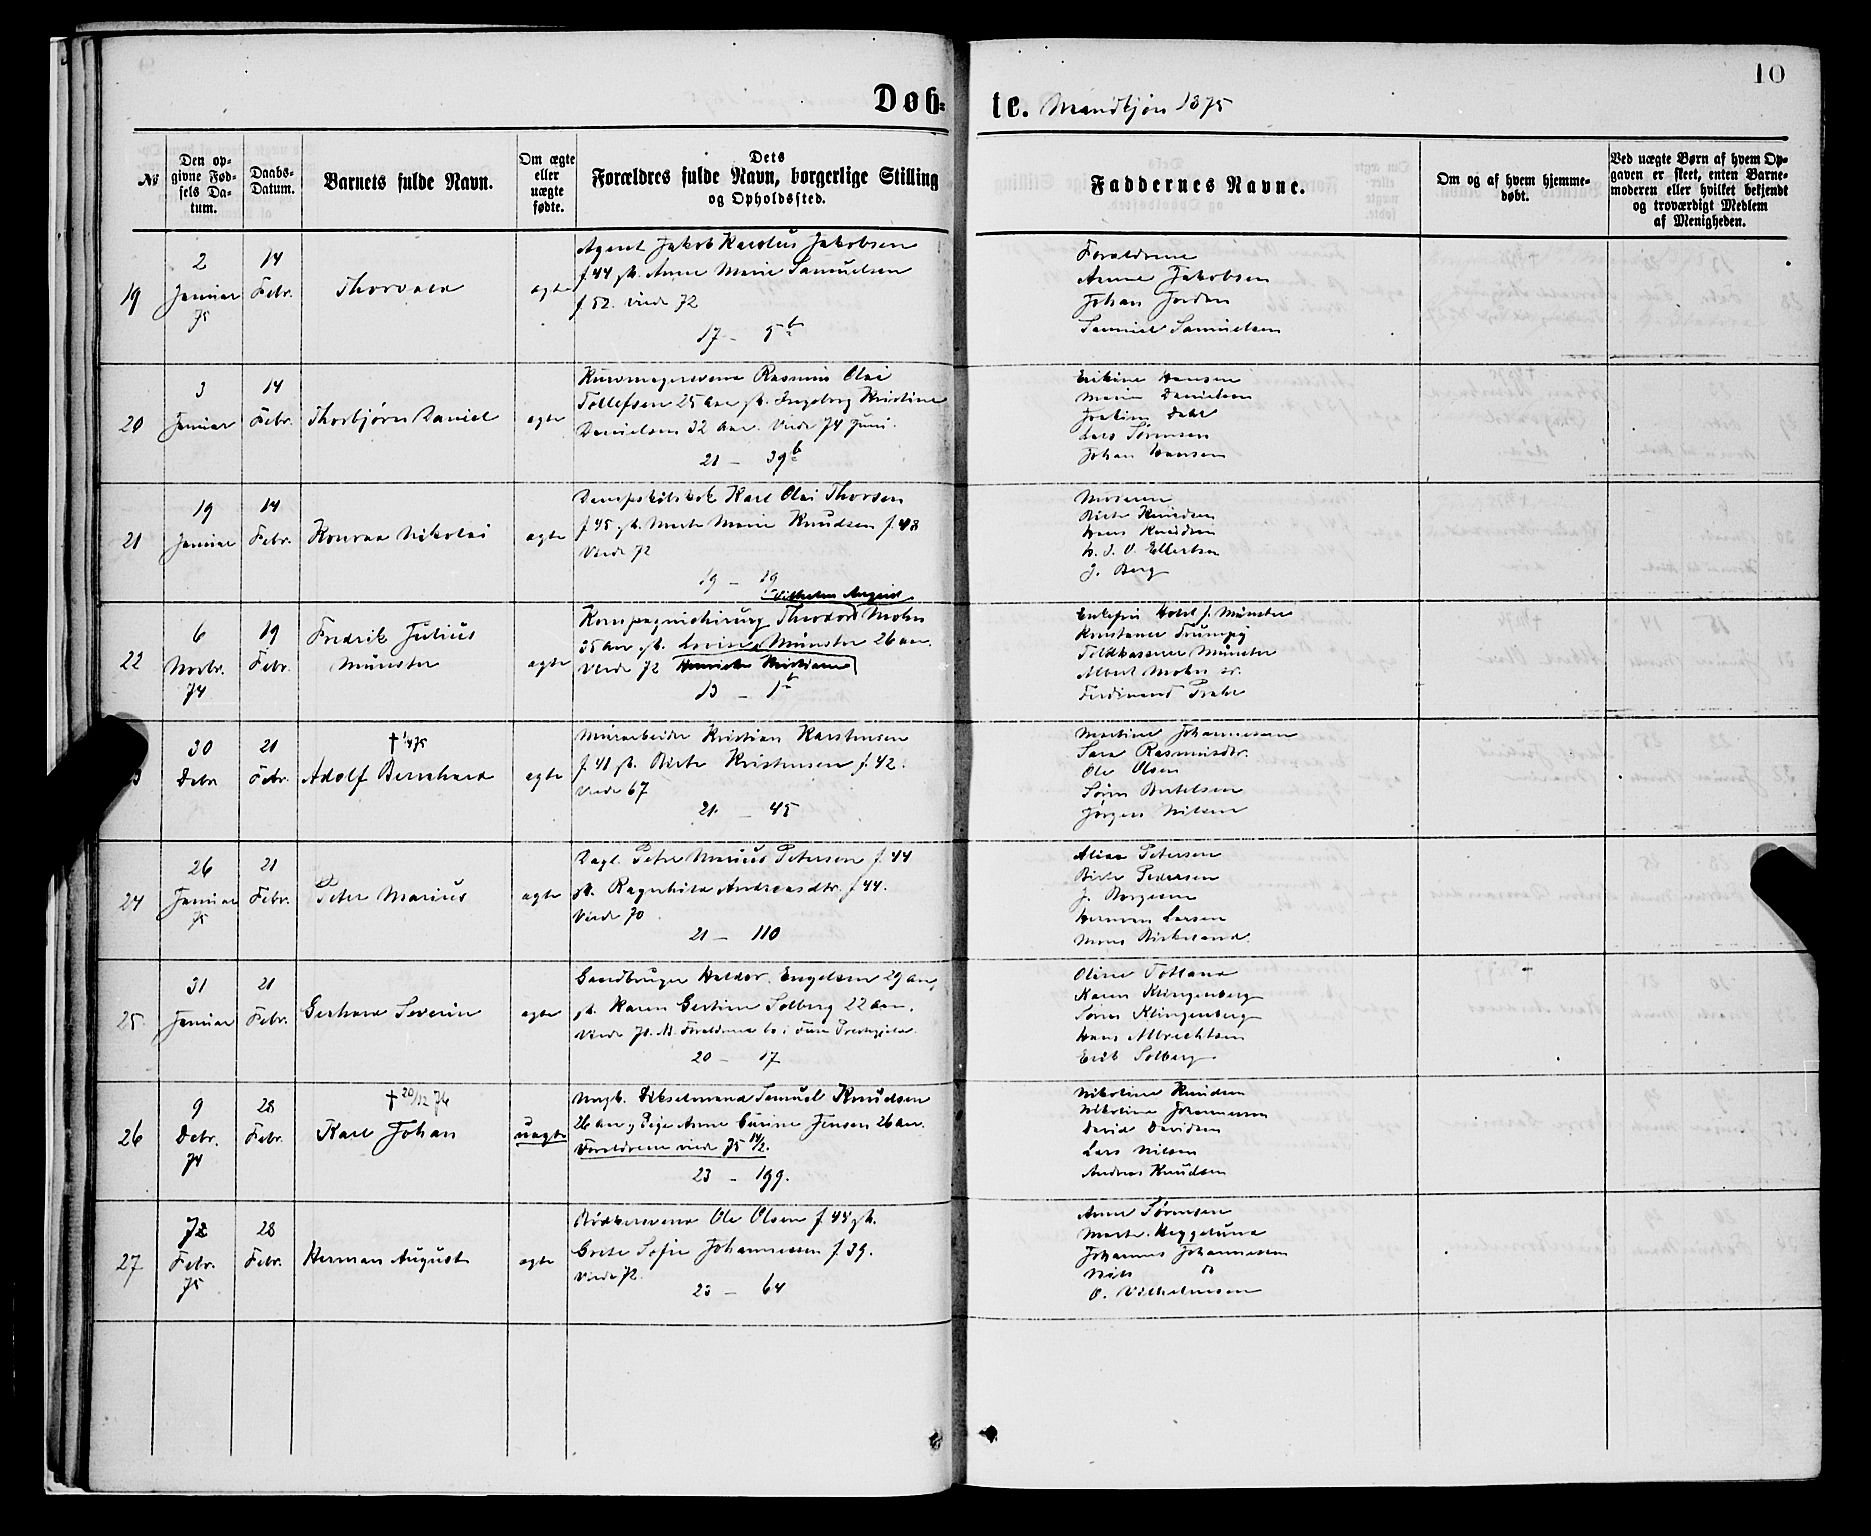 10
Døb-
te. Mandkjøn 1875
№
Den op-
givne Fød-
sels Da-
tum.
Daabs-
Datum.
Barnets fulde Navn.
Om ægte
eller
uægte
fødte.
Dets
Forældres fulde Navn, borgerlige Stilling
og Opholdssted.
Faddernes Navne.
Om og af hvem hjemme-
døbt.
Ved uægte Børn af hvem Op-
gaven er skeet, enten Barne-
moderen eller hvilket bekjendt
og troværdigt Medlem
af Menigheden.
19
2
Januar
75
14
Febr.
Thorvald
ægte
Agent Jakob Karolus Jakobsen
f. 44 gt. Anne Marie Samuelsen
f 52. Viede 72
17 - 5b
Forældrene
Anne Jakobsen
Johan
Samuel Samuelsen
20
3
Januar
14
Febr.
Thorbjørn Daniel
ægte
Rasmus Olai
Tollefsen 25 Aar gt. Ingeborg Kristine
Danielsen 32 Aar. Viede 74 Juni.
21 - 39b
Hansen
Danielsen
Joakim Dahl
Lars Sørensen
Johan Hansen
21
19
Januar
14
Febr.
Konrad Nikolai
ægte
Dampskibskok Karl Olai Thorsen
f. 45 gt. Marie Knudsen f. 48
Viede 72
19 - 19
Moderen
Birte Knudsen
Hans Knudsen
Ellertsen
J. Berg
22
6
Novbr.
74
19
Febr.
Fredrik Julius
Münster
ægte
Vilhelm August
Kompagnichirurg Theodor Mohn
35 Aar gt. Lovise Münster 26 Aar.
Viede 72 Henriette Kristiane
13 - 1b
Holst f. Münster
Konstance Trumpy
Toldkasserer Münster
Albert Mohn
Ferdinand
30
Debr
21
Febr.
† 1/4 75
Adolf Bernhard
ægte
Murarbeider Kristian Karstensen
f. 41 gt. Birte Kristensen f. 42.
Viede 67
21 - 45
Martine Johannesen
Sara Rasmusdtr.
Ole Olsen
Søren Bertelsen
Jørgen Nilsen
24
26
Januar
75
21
Febr.
Peter Marius
ægte
Dagl. Peter Marius Petersen f. 44
gt. Ragnhild Andreasdtr. f 44.
Viede 70
21 - 110
Petersen
Birte Pedersen
J. Borgesen
Herman Larsen
Mons Birkeland
25
31
Januar
21
Febr.
Gerhard Severin
ægte
Gaardbruger Haldor Engelsen 29 Aar,
gt. Karen Gertine Solberg 22 Aar.
Viede 74. Forældrene bo i Fane Præstegjeld.
20 - 17
Oline Totland
Karen Klingenberg
Søren Klingenberg
Hans Albrechtsen
Erik Solberg
26
9
Debr.
74
28
Febr.
† 20/12 76
Karl Johan
uægte
Ungk. Samuel Knudsen
26 Aar, Pige Anne Jensen 26 Aar.
Forældrene viede 75 14/2.
23 - 199.
Nikoline Knudsen
Nikoline Johannesen
David Davidsen
Lars Nilsen
Andreas Knudsen
27
Febr.
75
28
Febr.
Herman August
ægte
Bødkersvend Ole Olsen f. 45 gt.
Grete Sofie Johannessen f. 39.
Viede 72.
23 - 64
Anne Sørensen
Marte Heggelund
Johannes Johannessen
Nils do
O. Vilhelmsen